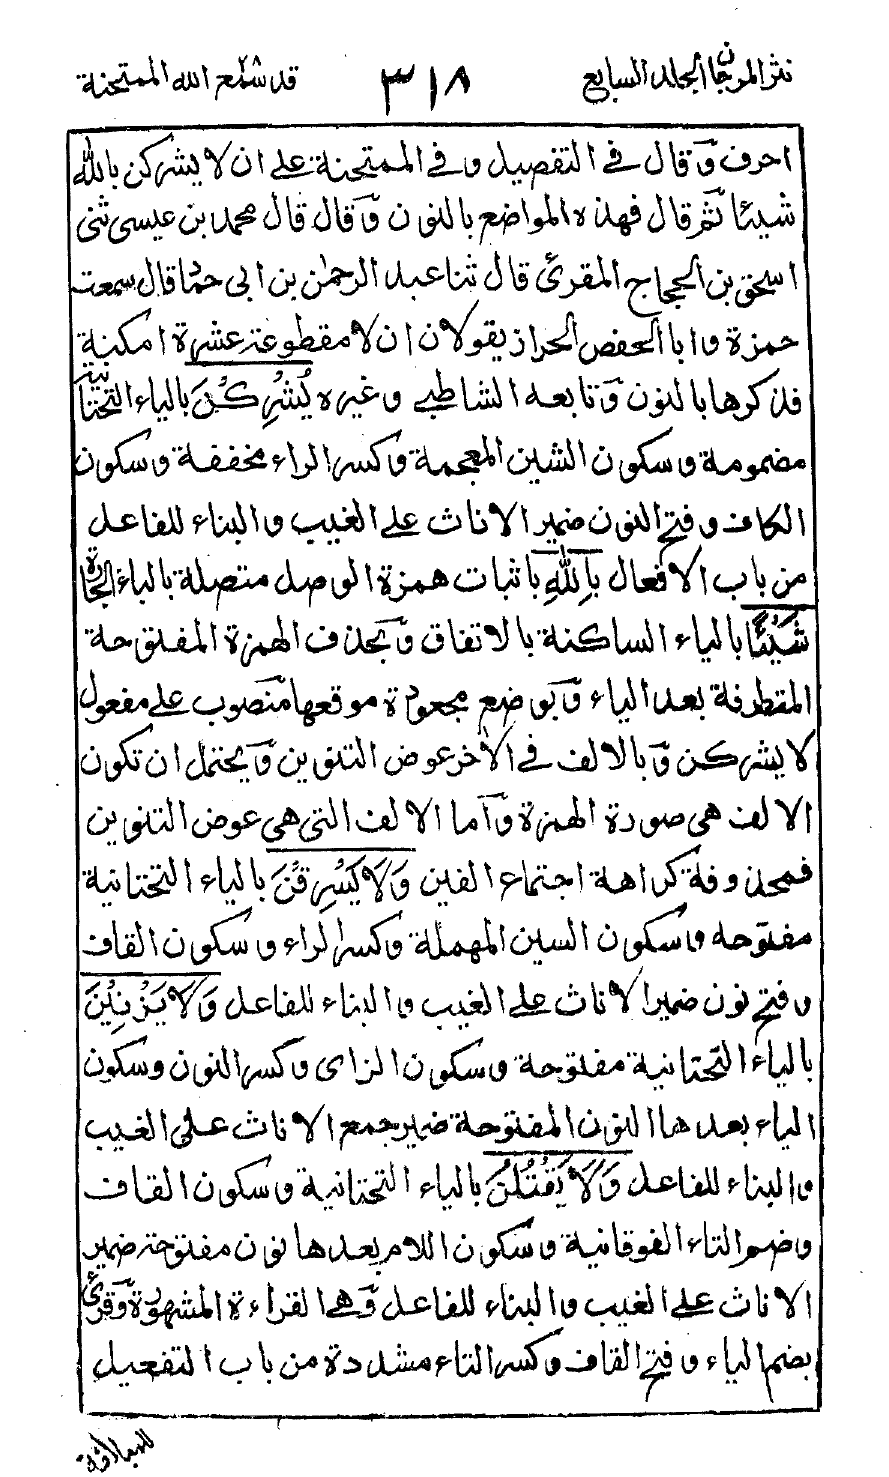 نثر المرجان الجلد السابع
٣١٨
قد سمع الله الممتحنة
احرف وقال في التفصيل وفي الممتحنة على ان لا يشركن بالله
شيئا ثم قال فهذه المواضع بالنون وقال قال محمد بن عيسى ثنى
اسحق بن الحجاج المقرئ قال ثنا عبد الرحمن بن ابى حماد قال سمعت
حمزة وابا الحفص الخراز يقولان ان لا مقطوعة عشرة امكنة
فذكرها بالنون وتابعه الشاطبي وغيره يُشْرِكْنَ بالياء التحتانية
مضمومة وسكون الشين المعجمة وكسر الراء مخففة وسكون
الكاف وفتح النون ضمير الاناث على الغيب والبناء للفاعل
من باب الافعال بِاللّٰهِ باثبات همزة الوصل متصلة بالباء الجارة
شَيْـًٔا بالياء الساكنة بالاتفاق وبحذف الهمزة المفتوحة
المتطرفة بعد الياء وبوضع مجعودة موقعها منصوب على مفعول
لا يشركن وبالالف في الآخر عوض التنوين ويحتمل ان تكون
الالف هي صورة الهمزة واما الالف التى هي عوض التنوين
فمحذوفة كراهة اجتماع الفين وَلَا يَسْرِقْنَ بالياء التحتانية
مفتوحه وسكون السين المهملة وكسر الراء وسكون القاف
وفتح نون ضمير الاناث على الغيب والبناء للفاعل وَلَا يَزْنِيْنَ
بالياء التحتانية مفتوحة وسكون الزاى وكسر النون وسكون
الياء بعدها النون المفتوحة ضمير جمع الاناث على الغيب
والبناء للفاعل وَلَا يَقْتُلْنَ بالياء التحتانية وسكون القاف
وضم التاء الفوقانية وسكون اللام بعدها نون مفتوحة ضمير
الاناث على الغيب والبناء للفاعل وهي القراءة المشهورة وقرئ
بضم الياء وفتح القاف وكسر التاء مشددة من باب التفعيل
للمبالغة